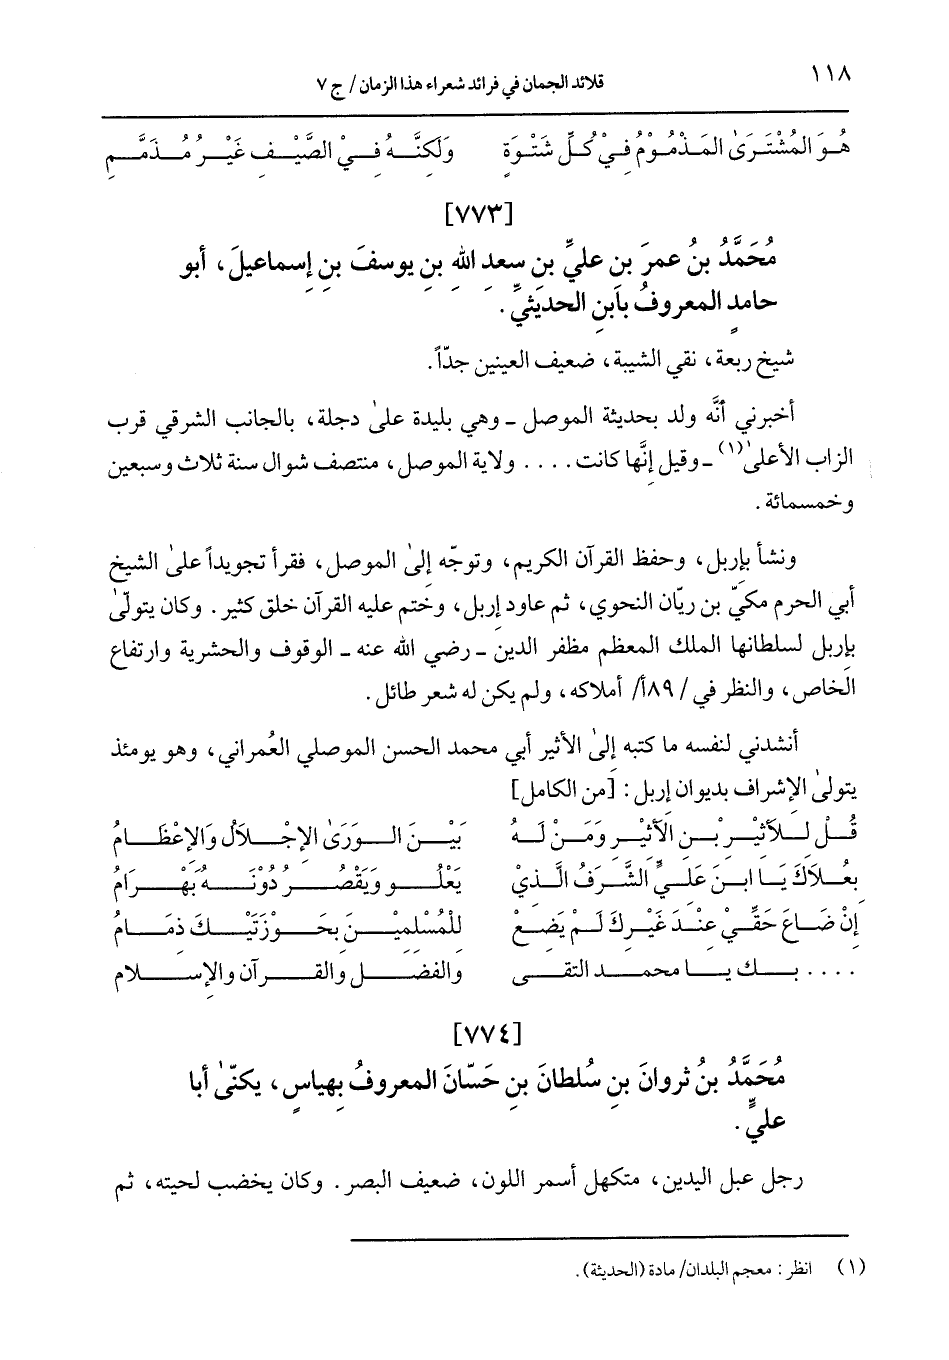 ١١٨
قلائد الجمان في فرائد شعراء هذا الزمان/ ج ٧
هُوَ المُشْتَرَىٰ المَذْمُوْمُ فِيْ كُلِّ شَتْوَةٍ وَلَكِنَّهُ فِيْ الصَّيْفِ غَيْرُ مُذَمَّمِ
[٧٧٣]
مُحَمَّدُ بنُ عمرَ بنِ عليِّ بنِ سعدِ اللهِ بنِ يوسفَ بنِ إسماعيلَ، أبو
حامدٍ المعروفُ بابنِ الحديثيِّ.
شيخ ربعة، نقي الشيبة، ضعيف العينين جدّاً.
أخبرني أنَّه ولد بحديثة الموصل ـ وهي بليدة علىٰ دجلة، بالجانب الشرقي قرب
الزاب الأعلىٰ(١) ـ وقيل إنَّها كانت .... ولاية الموصل، منتصف شوال سنة ثلاث وسبعين
وخمسمائة.
ونشأ بإربل، وحفظ القرآن الكريم، وتوجّه إلىٰ الموصل، فقرأ تجويداً علىٰ الشيخ
أبي الحرم مكيّ بن ريّان النحوي، ثم عاود إربل، وختم عليه القرآن خلق كثير. وكان يتولّىٰ
بإربل لسلطانها الملك المعظم مظفر الدين ـ رضي الله عنه ـ الوقوف والحشرية وارتفاع
الخاص، والنظر في / ٨٩أ/ أملاكه، ولم يكن له شعر طائل.
أنشدني لنفسه ما كتبه إلىٰ الأثير أبي محمد الحسن الموصلي العُمراني، وهو يومئذ
يتولىٰ الإشراف بديوان إربل: [من الكامل]
قُلْ لِلأَثِيْرِ بْنِ الأَثِيْرِ وَمَنْ لَهُ بَيْنَ الوَرَىٰ الإِجْلَالُ وَالإِعْظَامُ
بِعُلَاكَ يَا ابنَ عَلِيٍّ الشَّرَفُ الَّذِيْ يَعْلُو وَيَقْصُرُ دُوْنَهُ بَهْرَامُ
إِنْ ضَاعَ حَقِّيْ عِنْدَ غَيْرِكَ لَمْ يَضِعْ لِلْمُسْلِمِيْنَ بِحَوْزَتَيْكَ ذِمَامُ
.... بك يا محمد التقى والفضلِ والقرآنِ والإسلامِ
[٧٧٤]
مُحَمَّدُ بنُ ثروانَ بنِ سُلطانَ بنِ حَسّانَ المعروفُ بهياسٍ، يكنّىٰ أبا
عليٍّ.
رجل عبل اليدين، متكهل أسمر اللون، ضعيف البصر. وكان يخضب لحيته، ثم
(١) انظر: معجم البلدان/ مادة (الحديثة).